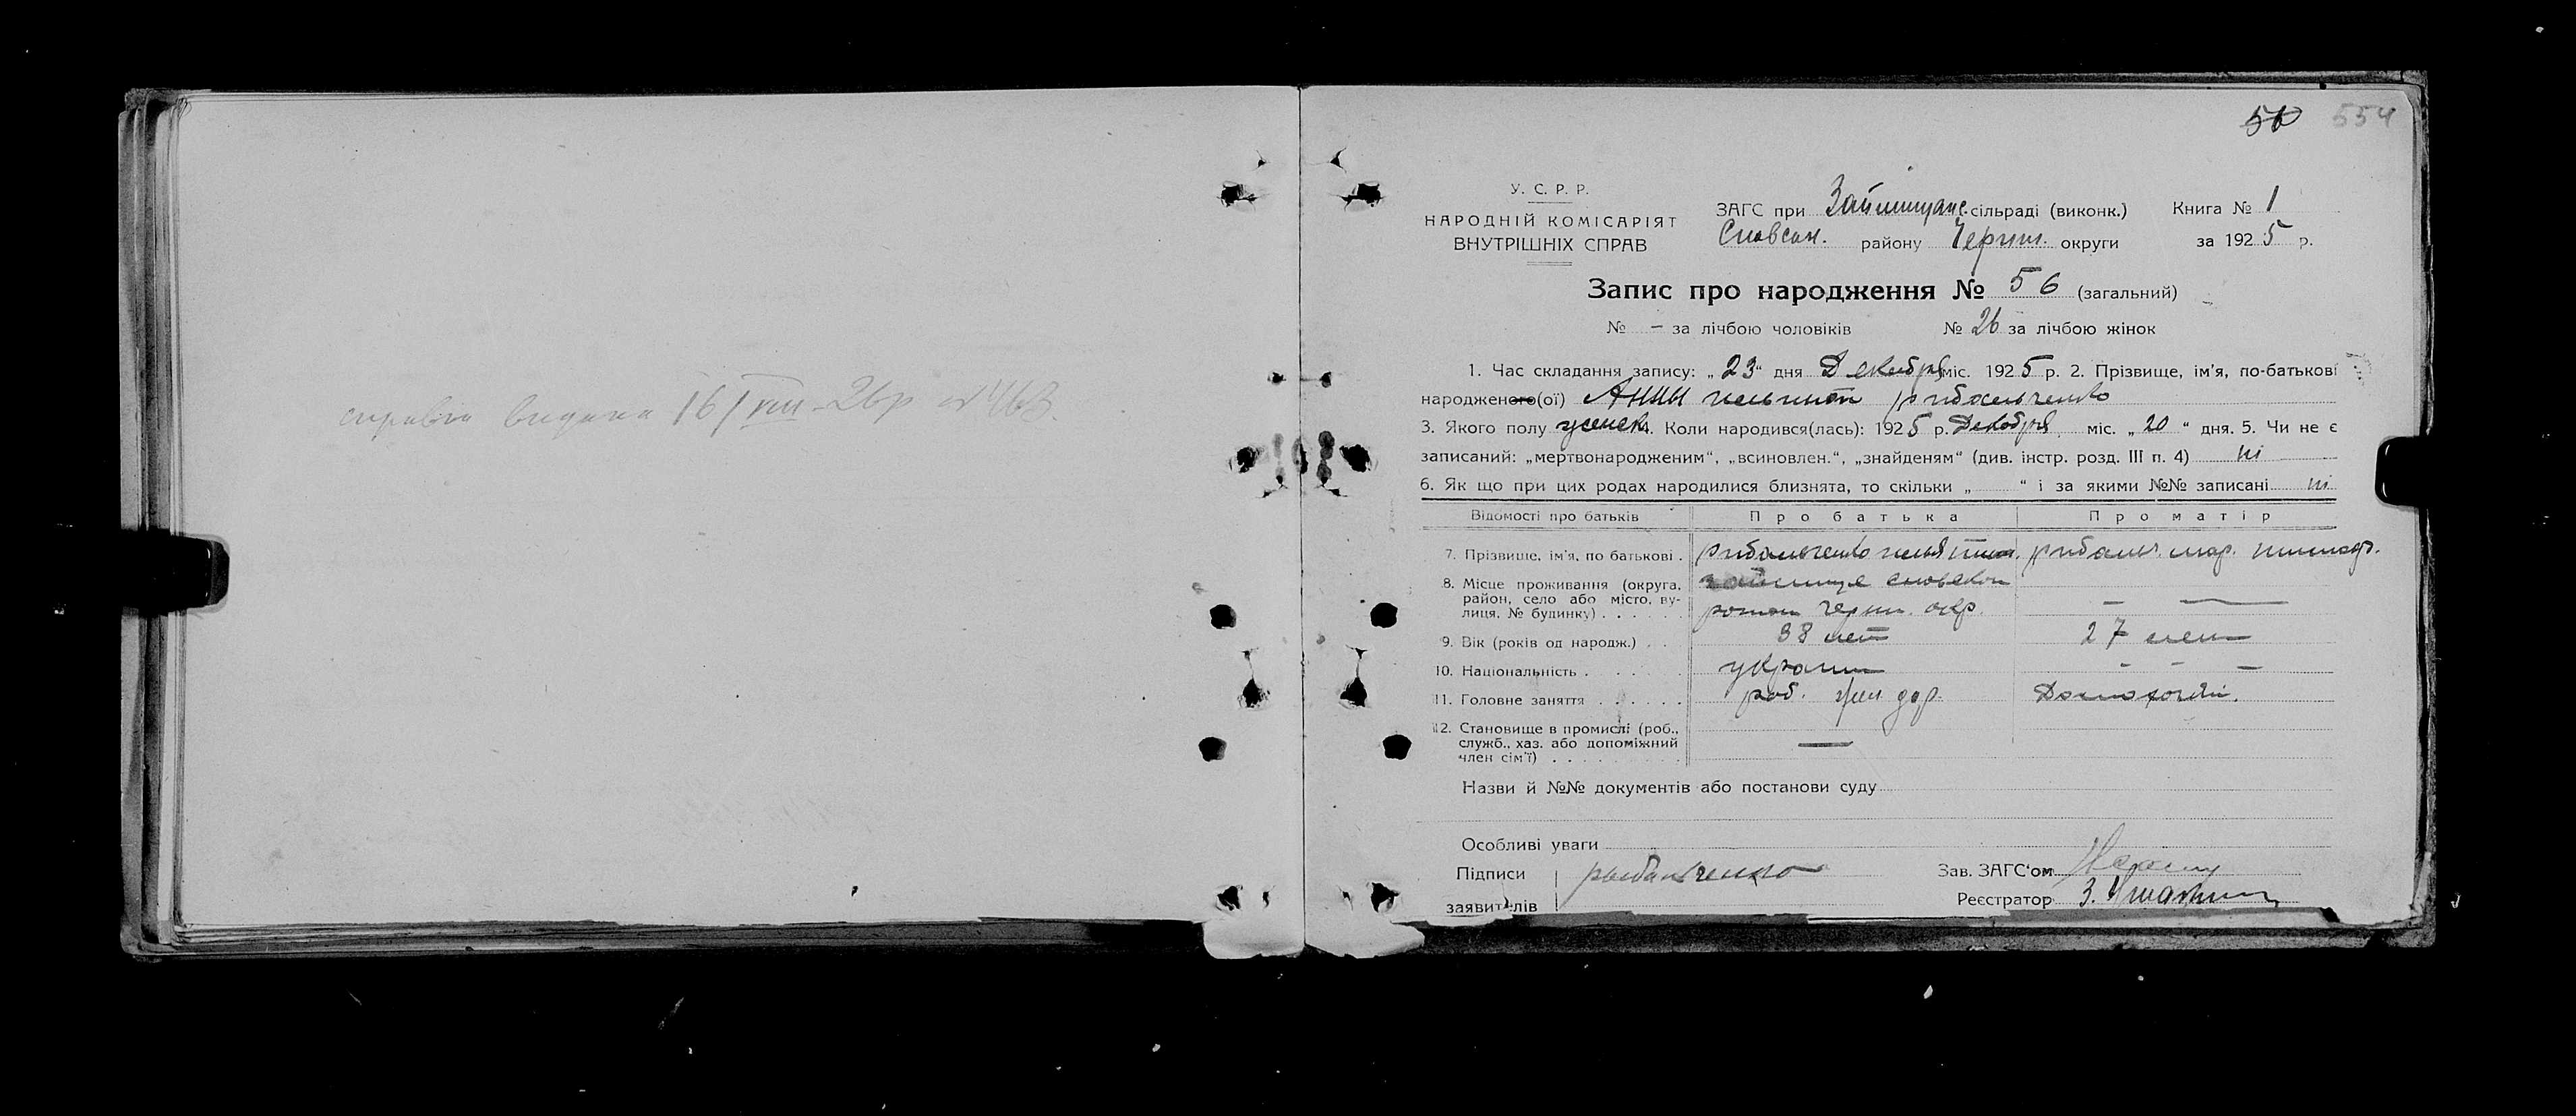 справка видана 16/VIII-26р №463.
554
У. С. Р. Р.
НАРОДНІЙ КОМІСАРІЯТ
ВНУТРІШНІХ СПРАВ
ЗАГС при Займищанс. сільраді (виконк.) Книга № 1
Сновськ. району Черниг. округи за 1925 р.
Запис про народження № 56 (загальний)
№ – за лічбою чоловіків № 26 за лічбою жінок
1. Час складання запису: „23“ дня Декабря міс. 1925 р. 2. Прізвище, ім'я, по-батькові
народженого(ої) Анны рибальченко
3. Якого полу женск 4. Коли народився(лась): 1925 р. Декабря міс. „20“ дня. 5. Чи не є
записаний: „мертвонародженим“, „всиновлен.“, „знайденям“ (див. інстр. розд. III п. 4) ні
6. Як що при цих родах народилися близнята, то скільки „ “ і за якими №№ записані ні
Відомості про батьків Про батька Про матір
7. Прізвище, ім'я, по батькові . рибальченко илья рибальч. мар.
8. Місце проживання (округа, займище сновской
район, село або місто, ву-
лиця, № будинку) . . . . . район черниг. окр. — —
9. Вік (років од народж.) . . 38 лет 27 лет
10. Національність . . . . . . украин – – –
11. Головне заняття . . . . . . раб. жел дор. Домохозяй.
12. Становище в промислі (роб.,
служб., хаз. або допоміжний —
член сім'ї) . . . . . . . . .
Назви й №№ документів або постанови суду
Особливі уваги
Підписи рыбальченко Зав. ЗАГС'ом
заявителів Реєстратор З.